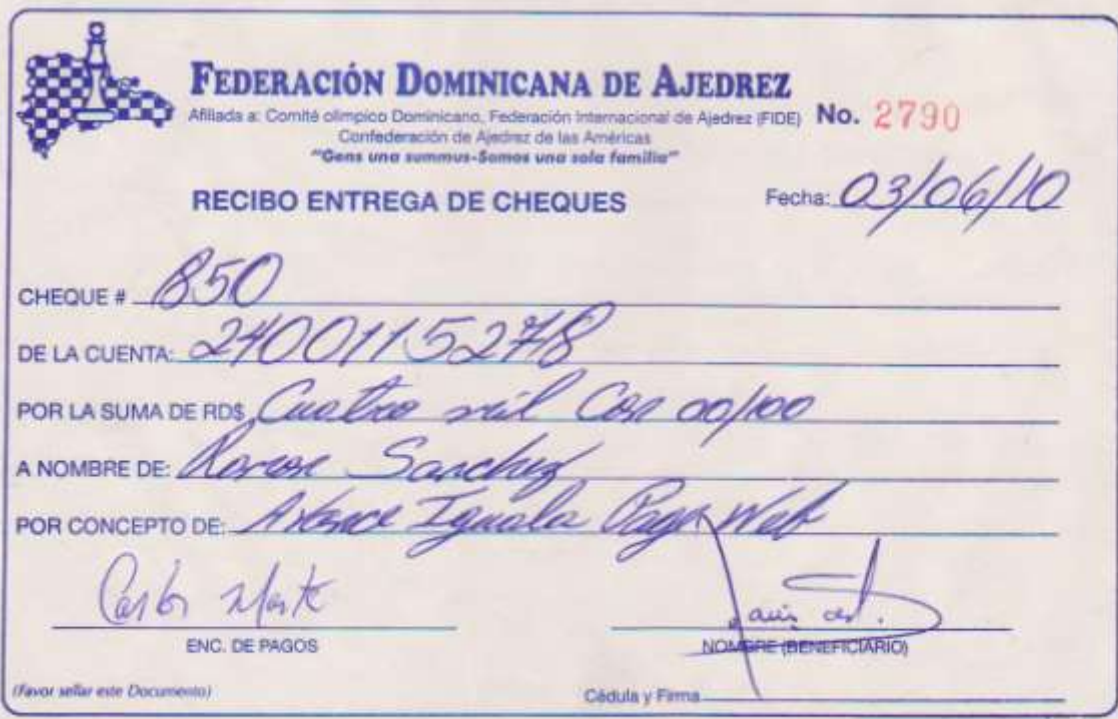 FEDERACIÓN DOMINICANA DE AJEDREZ
Afiliada a: Comité olimpico Dominicano, Federación Internacional de Ajedrez (FIDE) No. 2790
Confederación de Ajedrez de las Américas
"Gens una summus-Somos una sola familia"
RECIBO ENTREGA DE CHEQUES Fecha: 03/06/10
CHEQUE # 850
DE LA CUENTA: 2400115278
POR LA SUMA DE RD$ Cuatro mil Con 00/100
A NOMBRE DE: Sanchez
POR CONCEPTO DE: Avance Iguala Pagn Web
Carlos Marte
ENC. DE PAGOS NOMBRE (BENEFICIARIO)
(Favor sellar este Documento) Cédula y Firma